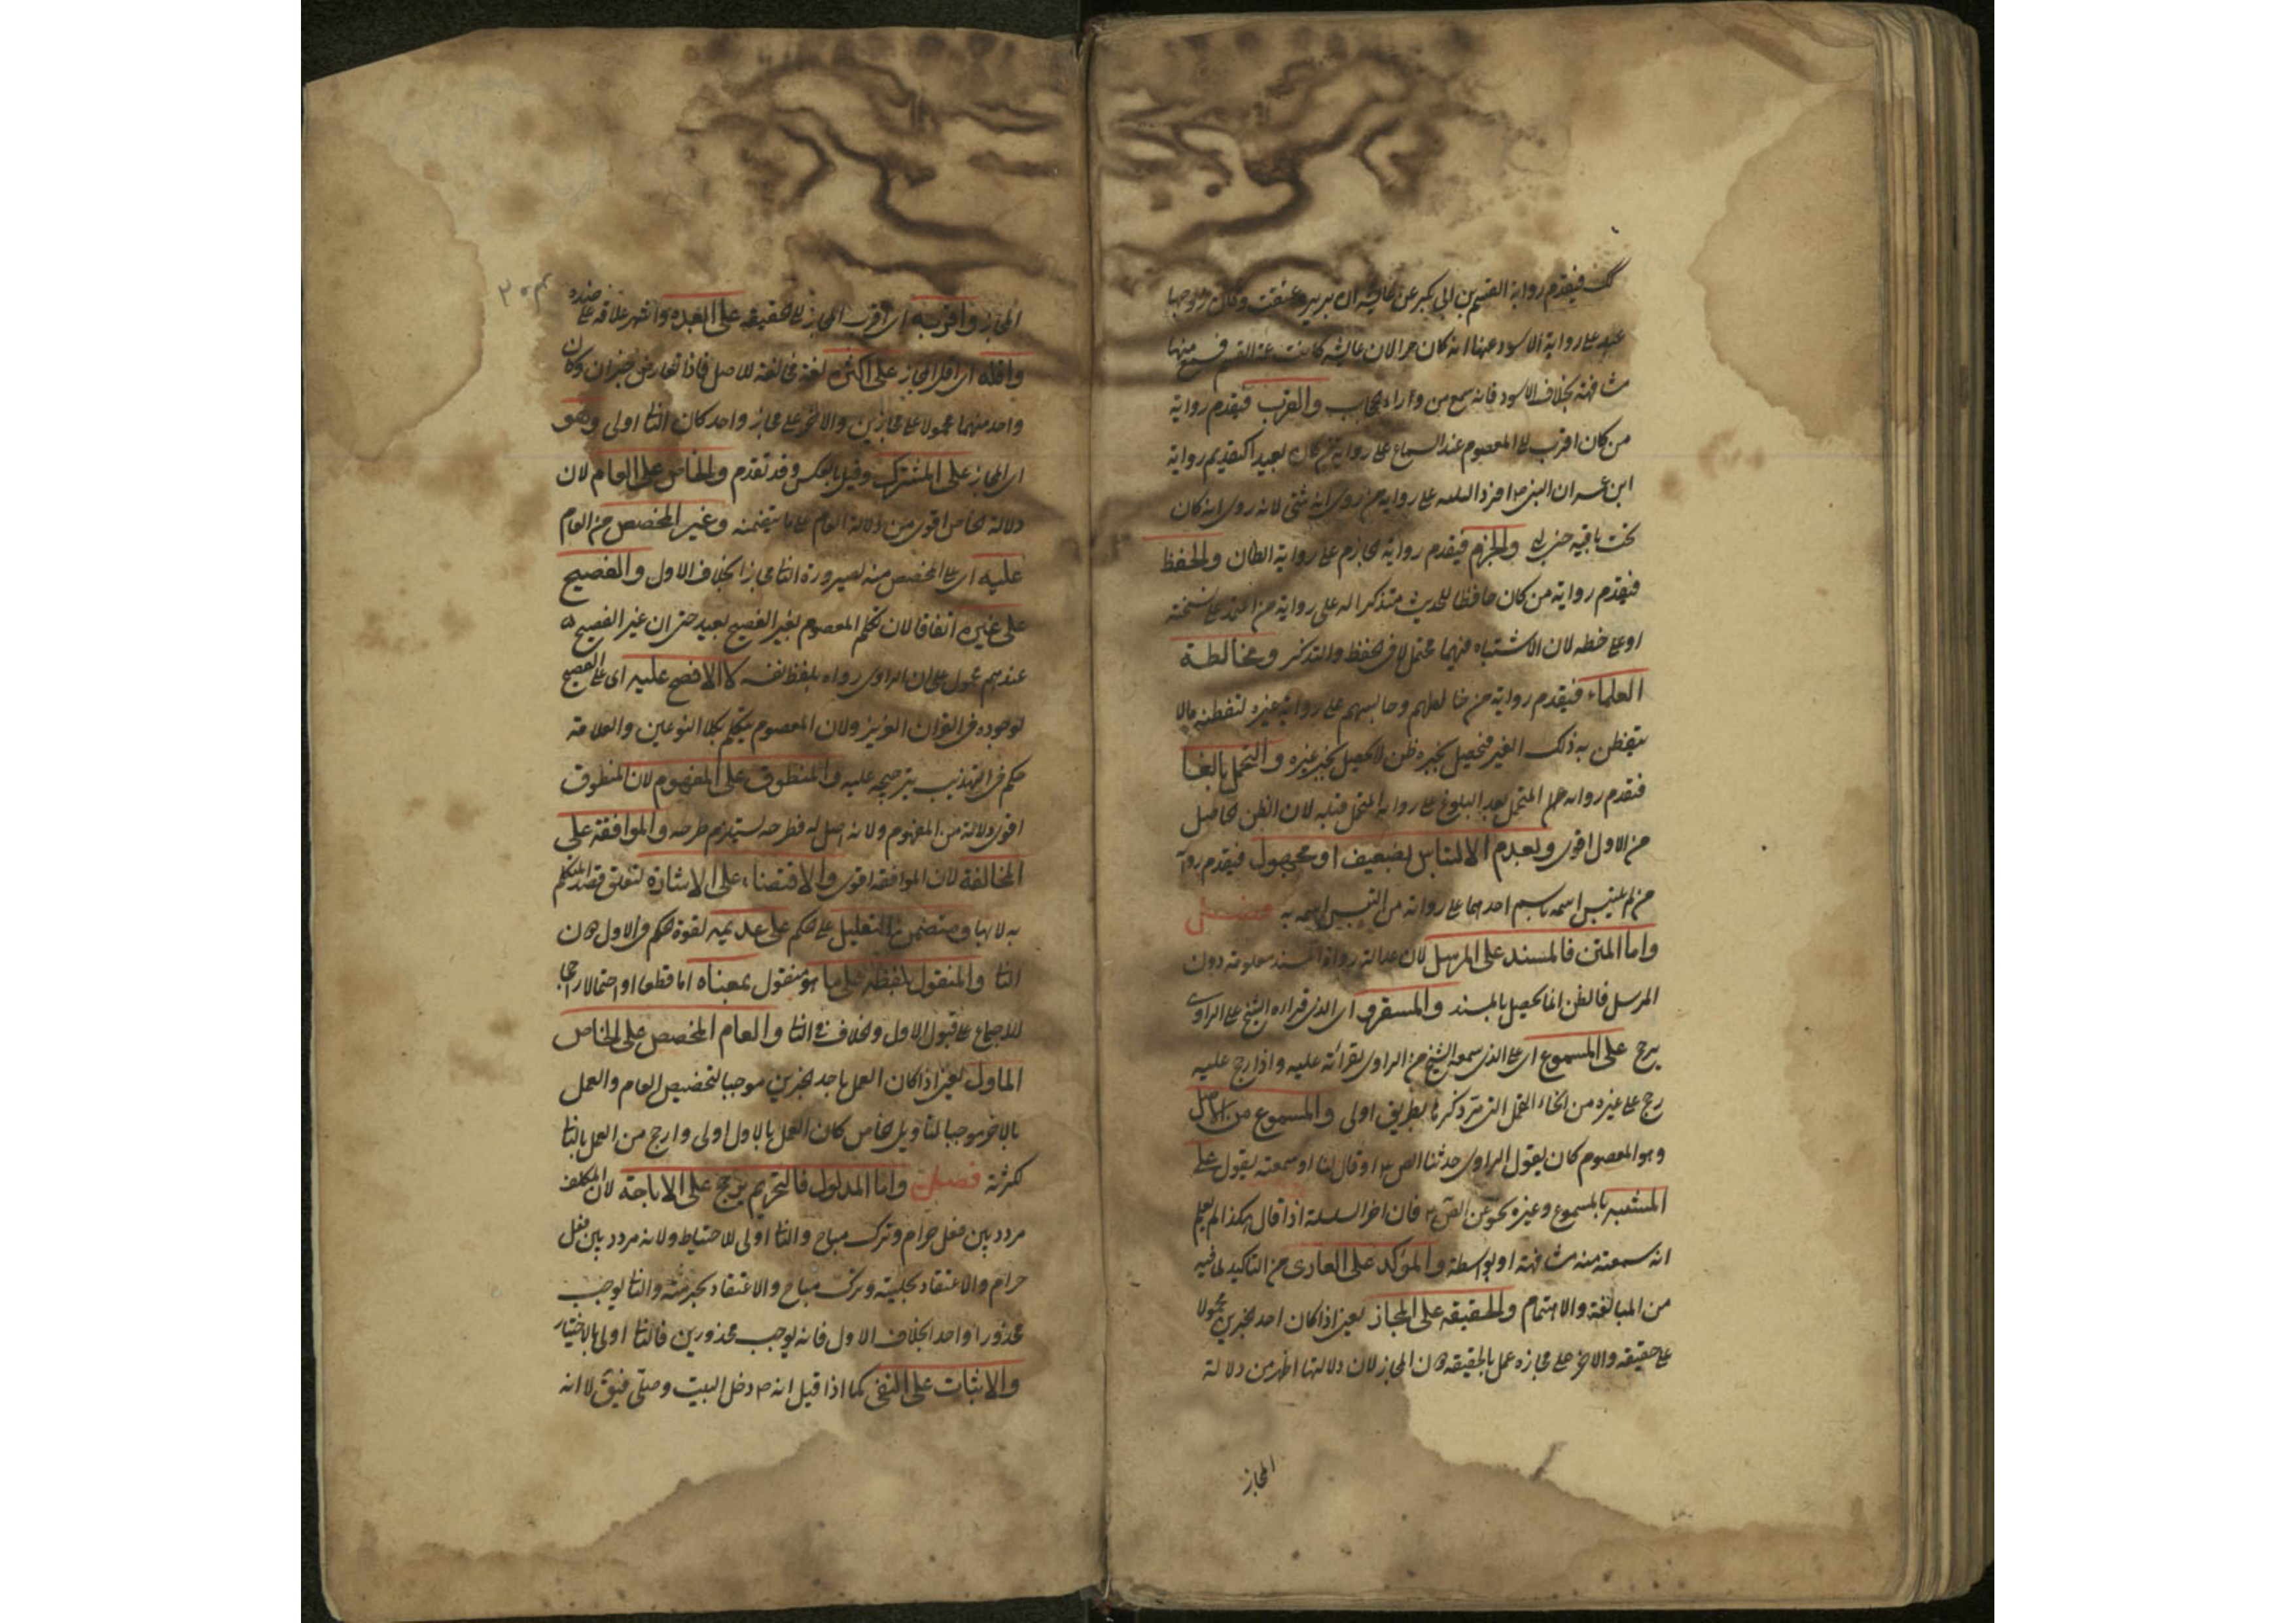 فيقدم رواية القسم بن ابى بكر عن عايشه ان بريره عتقت وكان زوجها
عبد على رواية الاسود عنها انه كان حرا لان عايشه كانت عمة القسم فسمع منها
مشافهة بخلاف الاسود فانه سمع من وراء الحجاب والقرب فيقدم رواية
من كان اقرب الى المعصوم عند السماع على رواية من كان بعيدا كتقديم رواية
ابن عمر ان النبى ص افرد على رواية من روى انه ثنى لانه روى انه كان
تحت ناقته حين والجزم فيقدم رواية الجازم على رواية الظان والحفظ
فيقدم رواية من كان حافظا للحديث متذكرا له على رواية من على نسخته
او على خطه لان الاشتباه فيهما محتمل لا فى الحفظ والتذكر ومخالطة
العلماء فيقدم رواية من خالطهم وجالسهم على رواية غيره لتفطنه مالا
يتفطن به ذلك الغير فيحصل بخبره ظن لا يحصل بخبر غيره والتحمل بالغا
فيقدم رواية المتحمل بعد البلوغ على رواية المتحمل قبله لان الظن الحاصل
من الاول اقوى وبعدم الالتباس بضعيف او مجهول فيقدم
من لم يلتبس اسمه باسم احدهما على رواية من التبس اسمه به فصل
واما المتن فالمسند على المرسل لان عدالة رواة المسند معلومة دون
المرسل فالظن انما يحصل بالمسند والمقرو اى الذى قراءه الشيخ على الراوى
يرجح على المسموع اى على الذى سمعه الشيخ من الراوى بقرائته عليه واذا رجح عليه
رجح على غيره من انحاء النقل التى مر ذكرها بطريق اولى والمسموع من الاصل
وهو المعصوم كان يقول الراوى حدثنا ص او قال لنا او سمعته يقول على
المشتبه بالمسموع وغيره نحو عن ص فان اخر السلسلة اذا قال هكذا لم يعلم
انه سمعته منه مشافهة او بواسطة والمؤكد على العارى من التاكيد لما فيه
من المبالغة والاهتمام والحقيقة على المجاز يعنى اذا كان احد الخبرين محمولا
على حقيقة والاخر على مجازه عمل بالحقيقة دون المجاز لان دلالتها اظهر من دلالة
المجاز
المجاز واقربه اى اقرب المجاز الى الحقيقة على ابعده واشهر علاقة على ضده
واقله اى اقل المجاز على اكثره لغة مخالفة للاصل فاذا تعارض خبران وكان
واحد منهما محمولا على مجازين والاخر على مجاز واحد كان الثانى اولى وهو
اى المجاز على المشترك وقيل بالعكس وقد تقدم والخاص على العام لان
دلالة الخاص اقوى من دلالة العام على ما يتضمنه وغير المخصص من العام
عليه اى على المخصص منه لصيرورة الثانى مجازا بخلاف الاول والفصيح
على غيره اتفاقا لان تكلم المعصوم بغير الفصيح بعيد حتى ان غير الفصيح
عندهم محمول على ان الراوى رواه بلفظ نفسه لا الافصح عليه اى على الفصيح
لوجوده فى القران العزيز ولان المعصوم يتكلم بكلا النوعين والعلامة
حكم فى التهذيب بترجيحه عليه والمنطوق على المفهوم لان المنطوق
اقوى دلالة من المفهوم ولانه اصل له فطرحه يستلزم طرحه والموافقة على
المخالفة لان الموافقة اقوى والاقتضاء على الاشارة لتعلق قصد المتكلم
به لا بها ومتضمن التعليل على الحكم على عديمه لقوة الحكم فى الاول دون
الثانى والمنقول بلفظه على ما هو منقول بمعناه اما قطعا او احتمالا راجحا
للاجماع على قبول الاول والخلاف فى الثانى والعام المخصص على الخاص
الماول يعنى اذا كان العمل باحد الخبرين موجبا لتخصيص العام والعمل
بالاخر موجبا لتاويل الخاص كان العمل بالاول اولى وارجح من العمل بالثانى
لكثرته فصل واما المدلول فالتحريم يرجح على الاباحة لان المكلف
مردد بين فعل حرام وترك مباح والثانى اولى للاحتياط ولانه مردد بين فعل
حرام والاعتقاد بحليته وترك مباح والاعتقاد بحرمته والثانى يوجب
محذورا واحدا بخلاف الاول فانه يوجب محذورين فالثانى اولى بالاختيار
والاثبات على النفى كما اذا قيل انه ص دخل البيت وصلى فيق لا انه